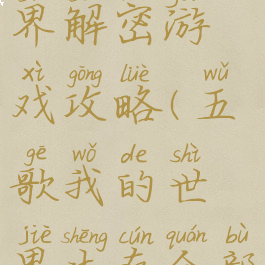 界解密游
xì gōng lüè wǔ
戏攻略(五
gē wǒ de shì
歌我的世
jiè shēng cún quán bù
界生存全部